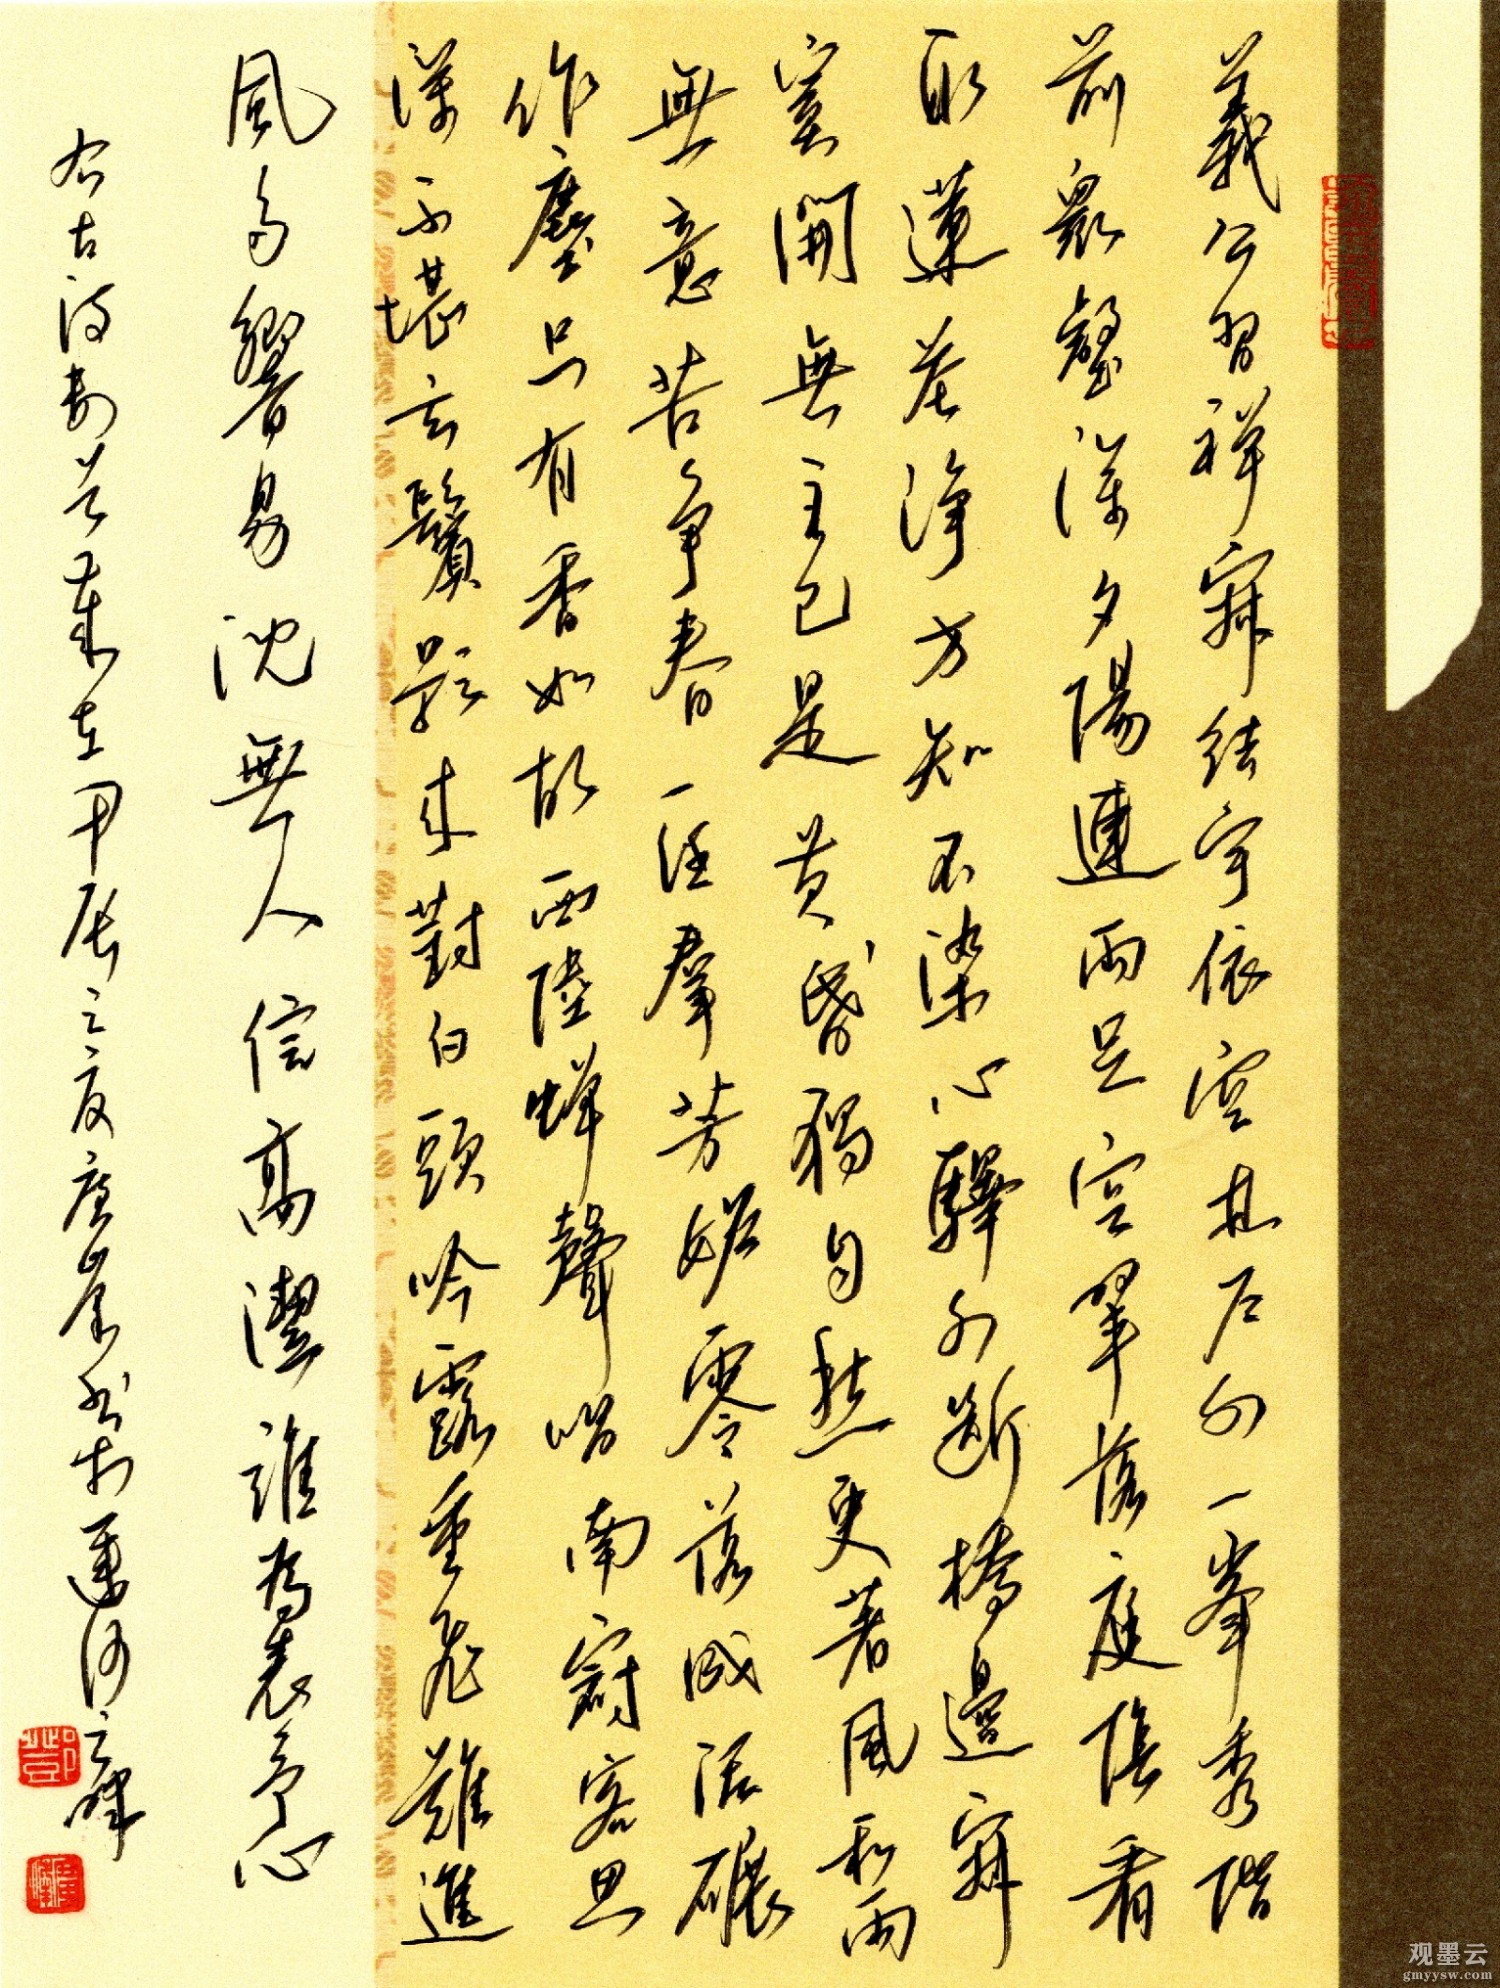 義公習禪寂結宇依空林戶外一峯秀階
前衆壑深夕陽連雨足空翠落庭陰看
取蓮花淨方知不染心驛外斷橋邊寂
寞開無主已是黃昏獨自愁更著風和雨
無意苦爭春一任羣芳妬零落成泥碾
作塵只有香如故西陸蟬聲唱南冠客思
深不堪玄鬢影來對白頭吟露重飛難進
風多響易沈無人信高潔誰為表予心
右古诗数首歲在甲辰之夏崖书於運河之畔
观墨云
gmyysw.com